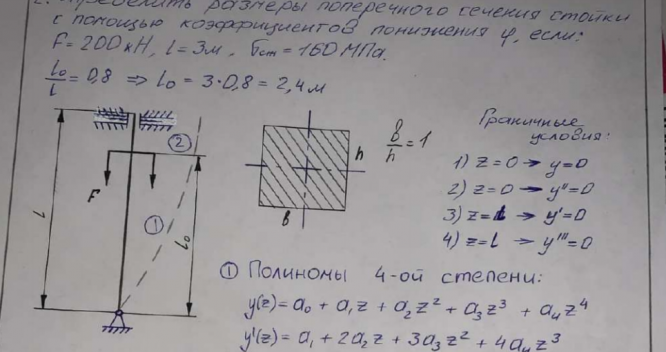 2. Определить размеры поперечного сечения стойки
с помощью коэффициентов понижения φ, если:
F = 200 кН, l = 3м, σст = 160 МПа.
l₀/l = 0,8 ⇒ l₀ = 3·0,8 = 2,4 м
l
②
F
①
l₀
h
b
b/h = 1
Граничные
условия:
1) z=0 → y=0
2) z=0 → y''=0
3) z=l → y'=0
4) z=l → y'''=0
① Полиномы 4-ой степени:
y(z) = a₀ + a₁z + a₂z² + a₃z³ + a₄z⁴
y'(z) = a₁ + 2a₂z + 3a₃z² + 4a₄z³